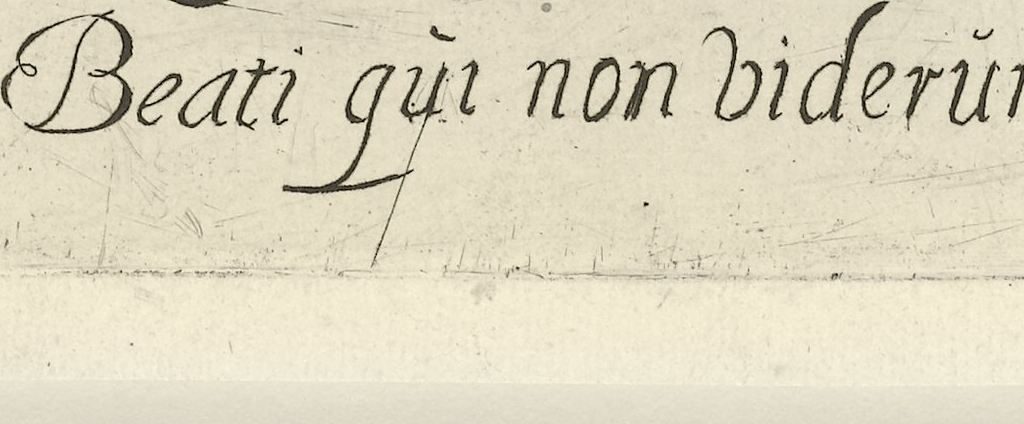 Beati qùi non viderŭn